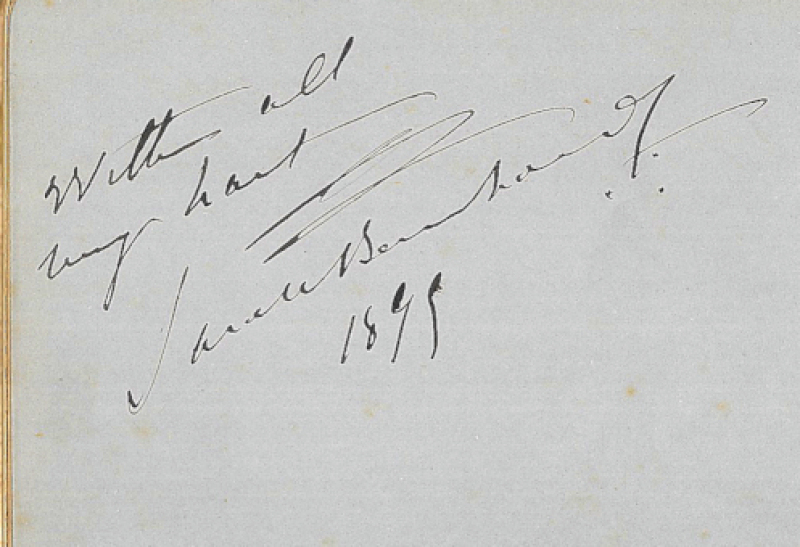 With all
my hart
Sarah Bernhardt
1899